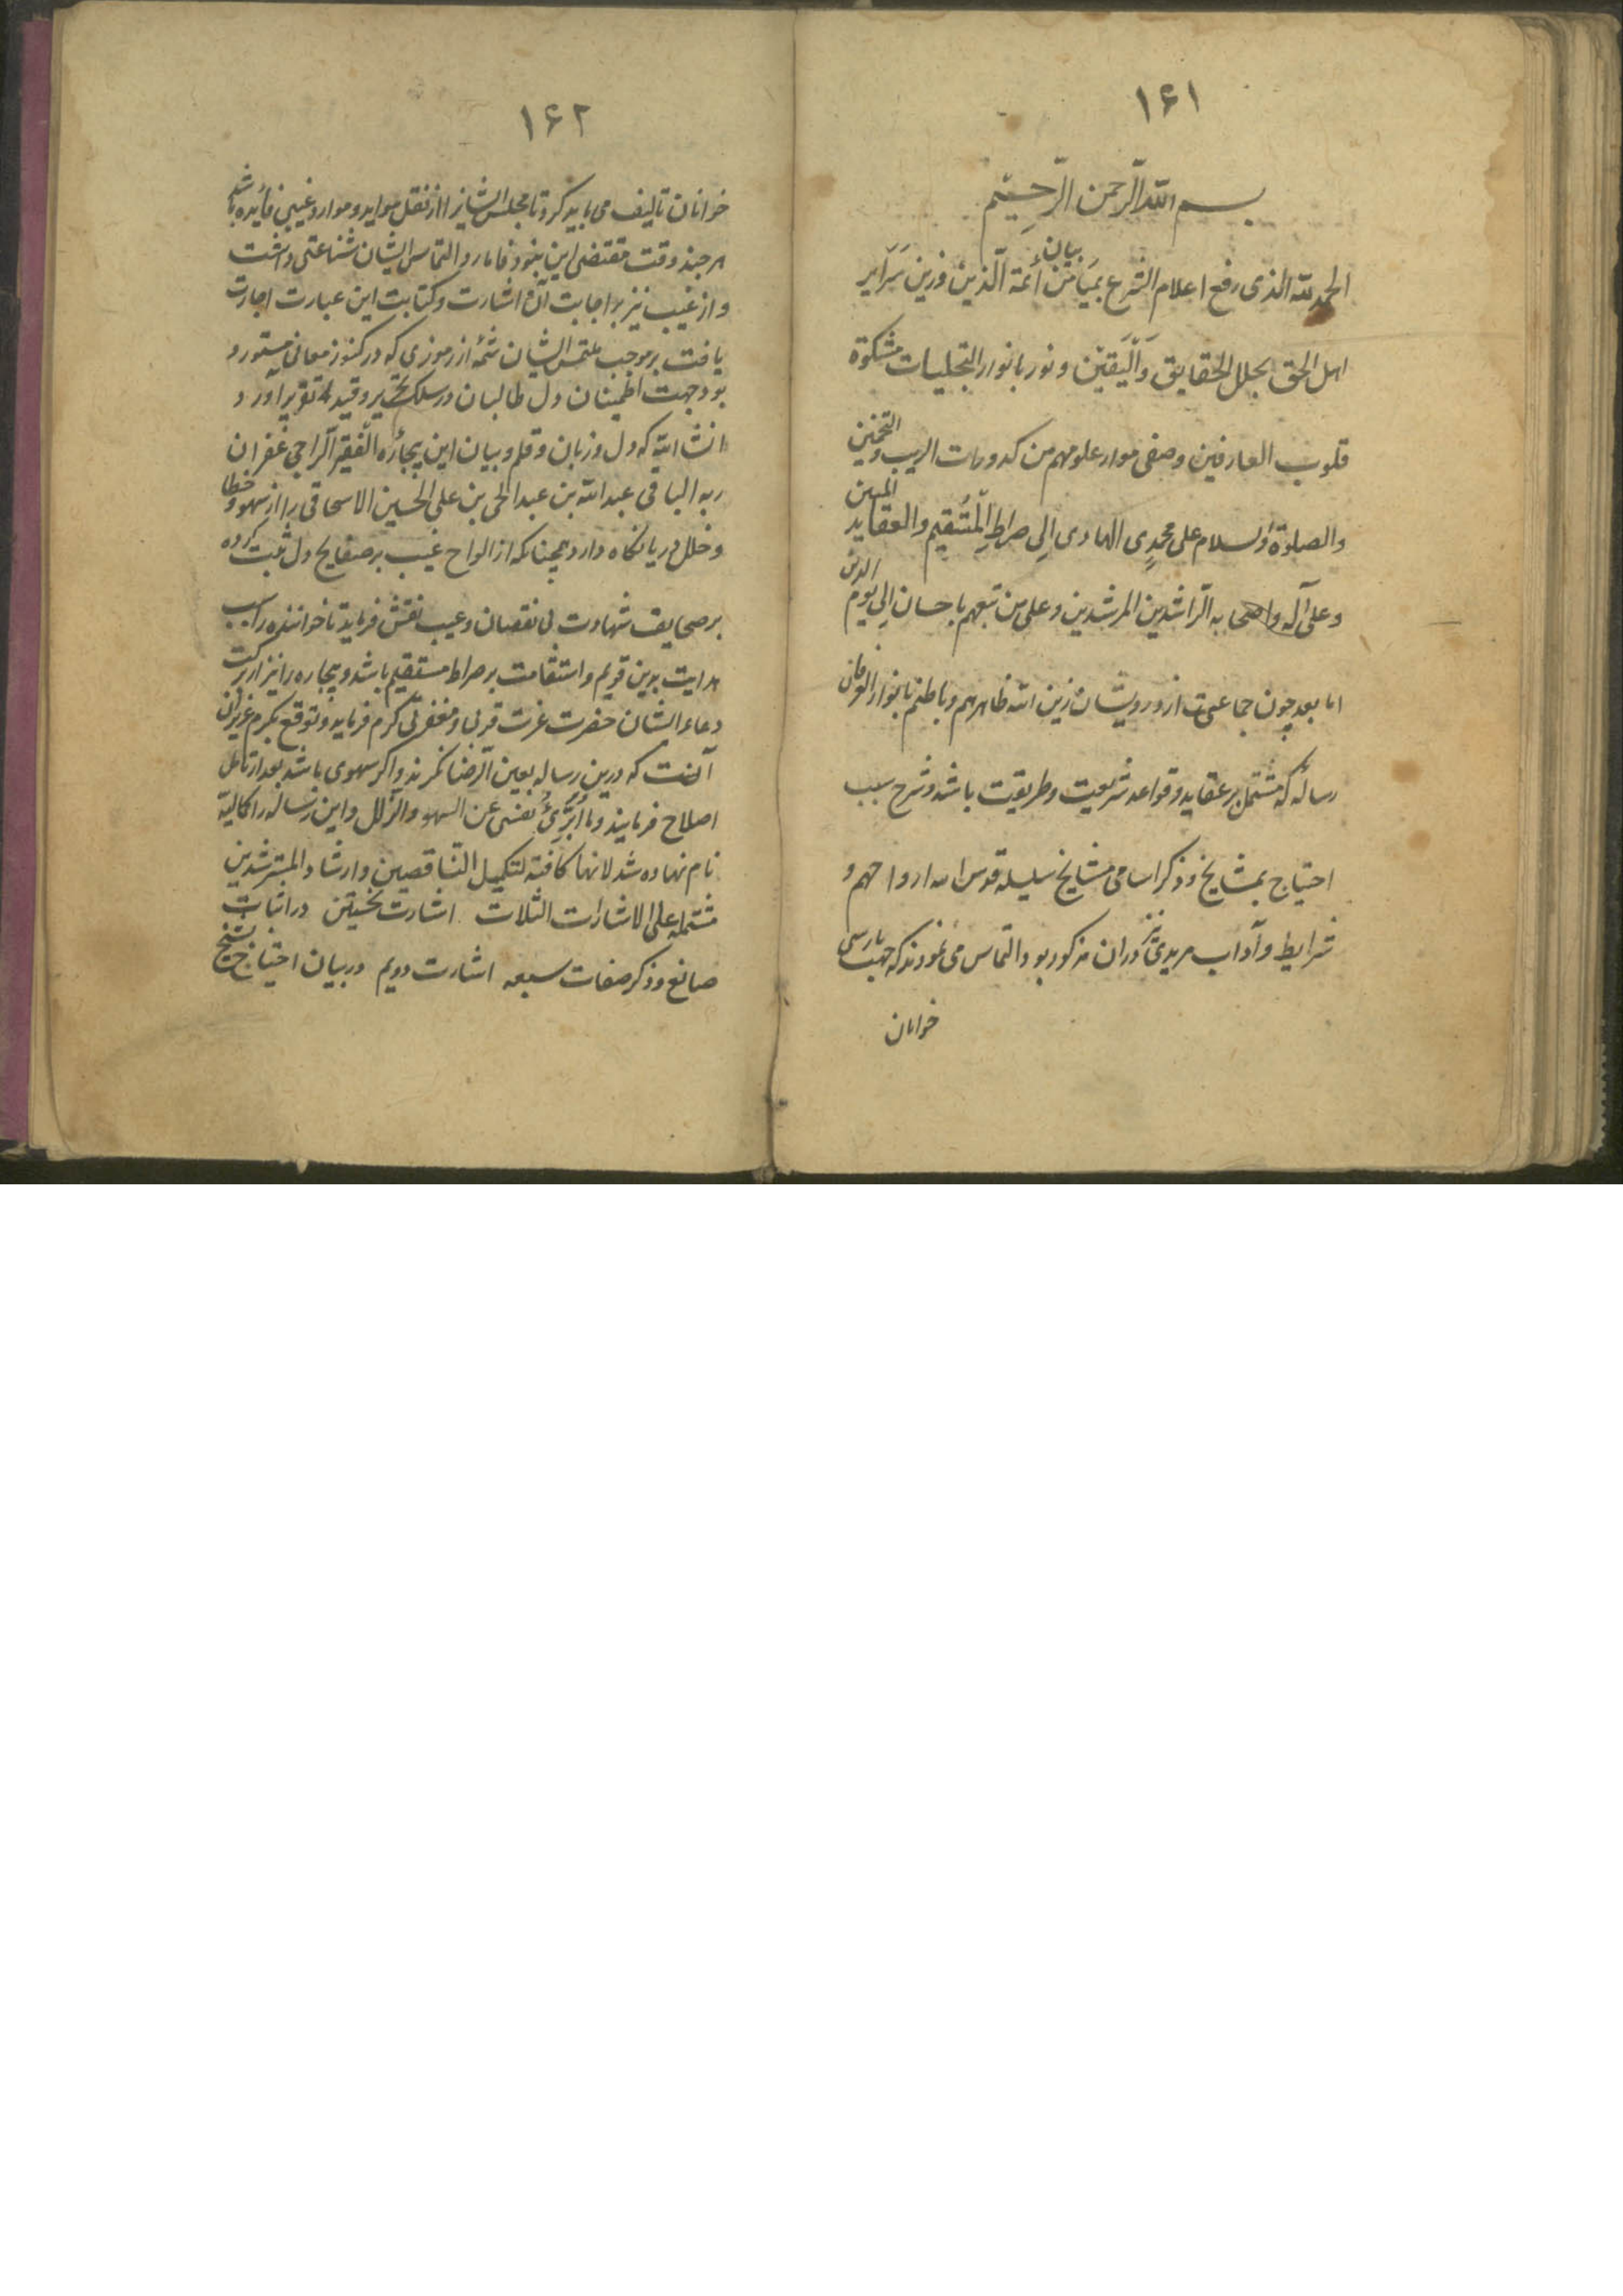 ۱۶۱
بسم الله الرحمن الرحیم
الحمد لله الذی رفع اعلام الشرع بمیامن بیان أئمة الدین وزین سراير
اهل الحق بحلل الحقایق والیقین ونور بانوار التجلیات مشکوة
قلوب العارفین وصفی موارد علومهم من کدورات الریب والتخمین
والصلوة والسلام علی محمد الهادی الی صراط المستقیم والعقاید المبین
وعلی آله واصحابه الراشدین المرشدین وعلی من تبعهم باحسان الی یوم الدین
اما بعد چون جماعتی از درویشان زین الله ظاهرهم وباطنهم بانوار العرفان
رسالهٔ که مشتمل بر عقاید وقواعد شریعت وطریقت باشد وشرح سبب
احتیاج بمشایخ وذکر اسامی مشایخ سلسله قدس الله ارواحهم و
شرایط وآداب مریدی نیز دران مذکور بود التماس می نمودند که جهت پارسی
خوانان
۱۶۲
خوانان تالیف می باید کرد تا مجلس ایشانرا از نقل مواید وموارد غیبی فایده باشد
هرچند وقت مقتضی این نبود فاما رد التماس ایشان شناعتی داشت
واز غیب نیز بر اجابت آن اشارت وکتابت این عبارت اجازت
یافت بر موجب ملتمس ایشان شمهٔ از رموزی که در کنوز معانی مستور
بود جهت اطمینان دل طالبان در سلک تحریر وقید تقریر آورد
انشاء الله که دل وزبان وقلم وبیان این بیچاره الفقیر الراجی غفران
ربه الباقی عبد الله بن عبد الحی بن علی الحسین الاسحاقی را از سهو و خطا
وخلل وریا نگاه دارد همچنانکه از الواح غیب بر صفایح دل ثبت کرده
بر صحایف شهادت بی نقصان وعیب نقش فرماید تا خواننده را سبب
هدایت بدین قویم واستقامت بر صراط مستقیم باشد وبیچاره را نیز از برکت
دعاء ایشان حضرت عزت قربی ومغفرتی کرم فرماید وتوقع بکرم عزیزان
آنست که درین رساله بعین الرضا نگرند واگر سهوی باشد بعد از تامل
اصلاح فرمایند وما ابرئ نفسی عن السهو والزلل واین رساله را کمالیة
نام نهاده شد لانها کافیة لتکمیل الناقصین وارشاد المسترشدین
مشتملة علی الاشارات الثلاث اشارت نخستین در اثبات
صانع وذکر صفات سبعه اشارت دویم در بیان احتیاج بشیخ